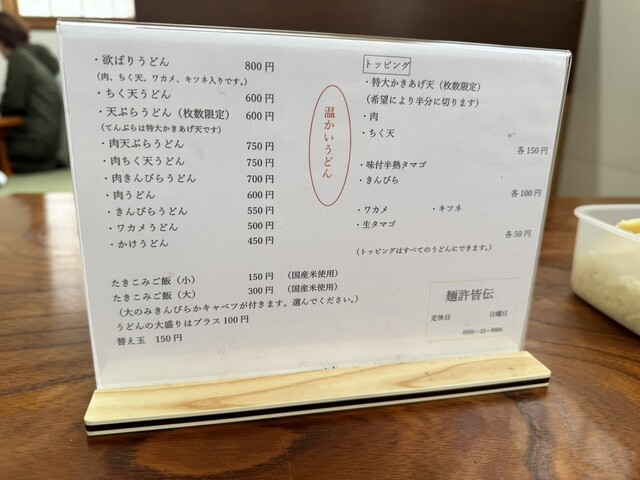 ・欲ばりうどん 800円
(肉、ちく天、ワカメ、キツネ入りです。)
・ちく天うどん 600円
・天ぷらうどん(枚数限定) 600円
(てんぷらは特大かきあげ天です)
・肉天ぷらうどん 750円
・肉ちく天うどん 750円
・肉きんぴらうどん 700円
・肉うどん 600円
・きんぴらうどん 550円
・ワカメうどん 500円
・かけうどん 450円
たきこみご飯(小) 150円 (国産米使用)
たきこみご飯(大) 300円 (国産米使用)
(大のみきんぴらかキャベツが付きます。選んでください。)
うどんの大盛りはプラス100円
替え玉 150円
温かいうどん
トッピング
・特大かきあげ天(枚数限定)
(希望により半分に切ります)
・肉
・ちく天
各150円
・味付半熟タマゴ
・きんぴら
各100円
・ワカメ ・キツネ
・生タマゴ
各50円
(トッピングはすべてのうどんにできます。)
麺許皆伝
定休日 日曜日